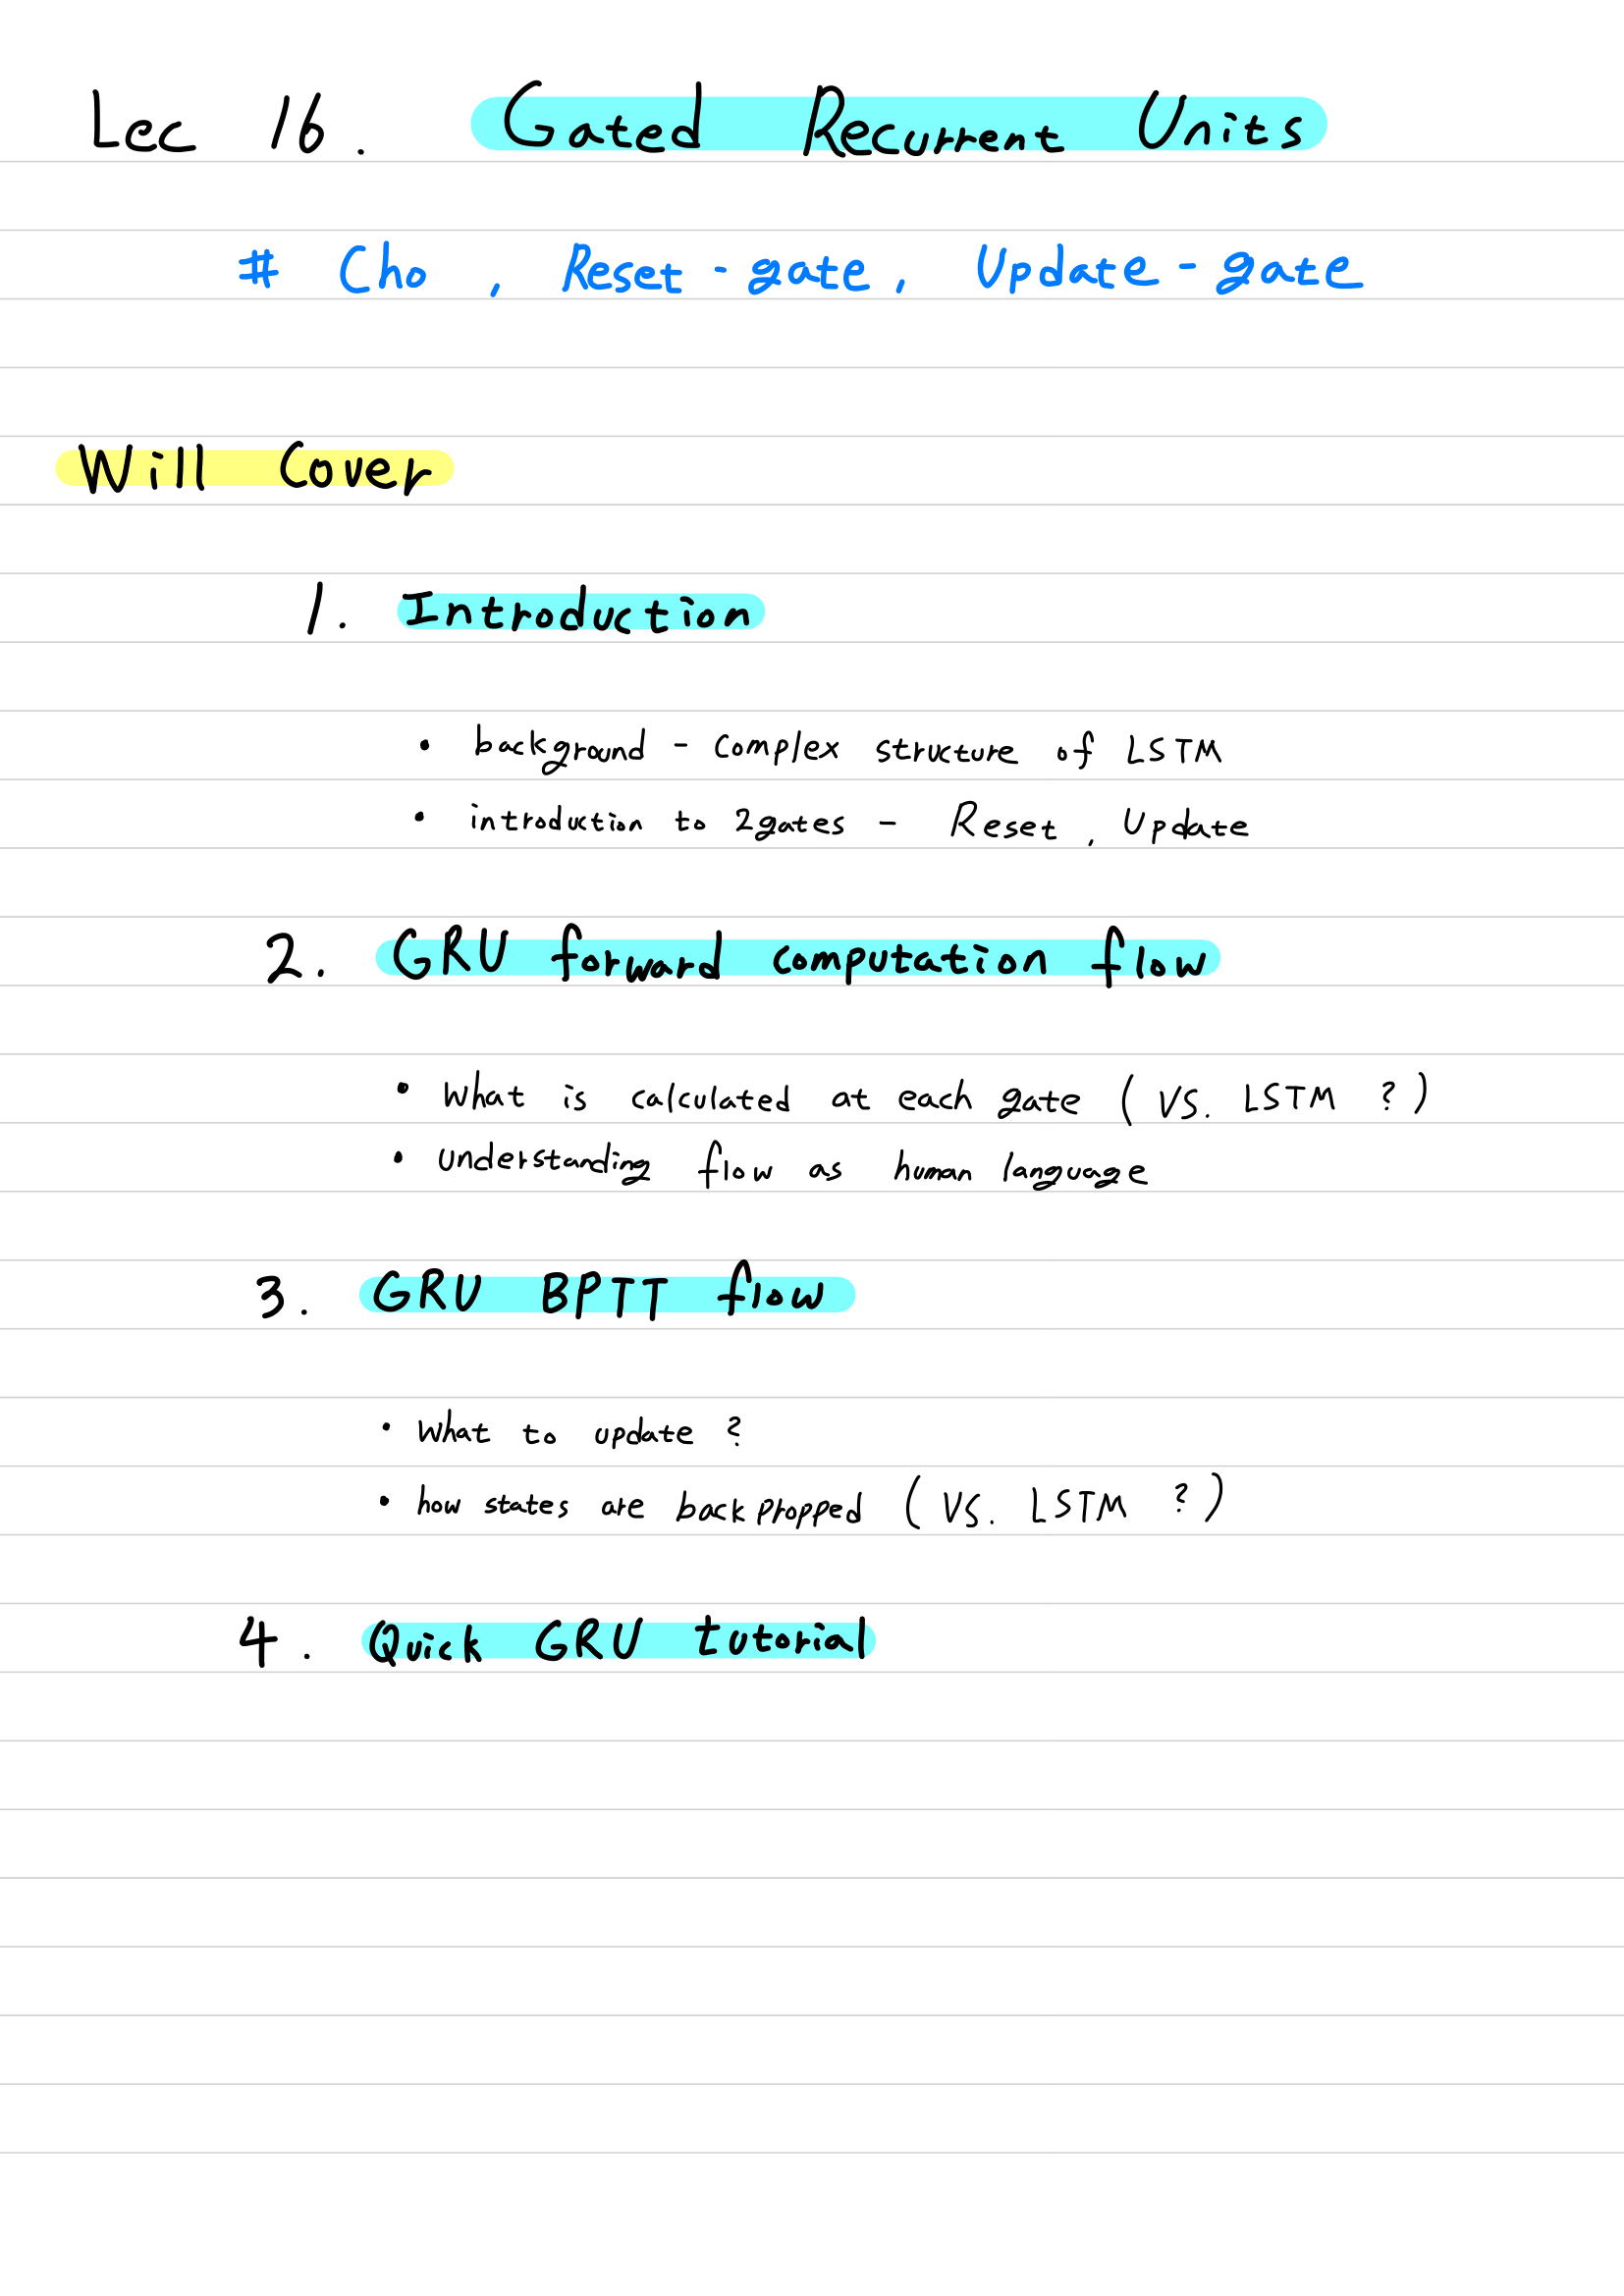 Lec 16. Gated Recurrent Units
# Cho, Reset-gate, Update-gate
Will Cover
1. Introduction
• background - complex structure of LSTM
• introduction to 2gates - Reset, Update
2. GRU forward computation flow
• What is calculated at each gate (VS. LSTM ?)
• understanding flow as human language
3. GRU BPTT flow
• What to update ?
• how states are backpropped (VS. LSTM ?)
4. Quick GRU tutorial